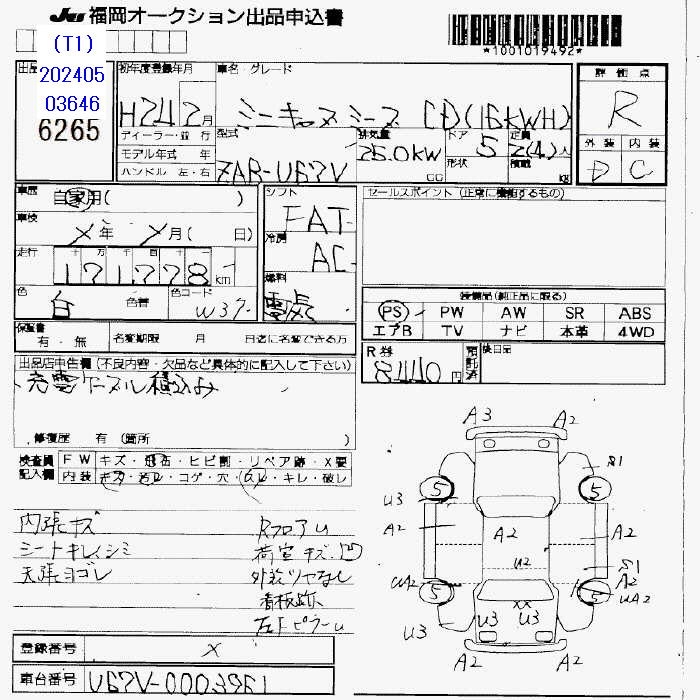 JU 福岡オークション出品申込書
*1001019492*
(T1)
202405
03646
6265
初年度登録年月
H24 2月
車名・グレード
ミニキャブ ミーブ CD(16KWH)
評価点
R
外装 内装
D C
ディーラー・並行
モデル年式 年
ハンドル 左・右
型式
ZAB-U67V
排気量
25.0kw
CC
ドア
5
形状
定員
2(4)人
積載
kg
車歴
自家用( )
車検
メ年 メ月( 日)
走行
十 万 千 百 十 一
121778 km
色
白
色替
色コード
W37
シフト
FAT
冷房
AC
燃料
電気
セールスポイント(正常に機能するもの)
装備品(純正品に限る)
PS PW AW SR ABS
エアB TV ナビ 本革 4WD
保証書
有・無
名変期限 月 日迄に名変できる方
R券
8440円
預託済
後日品
出品店申告欄(不良内容・欠品など具体的に記入して下さい)
充電ケーブル積込み
修復歴 有(箇所 )
検査員記入欄
FW キズ・飛石・ヒビ割・リペア跡・X要
内装 キズ・汚レ・コゲ・穴・ハレ・キレ・破レ
内張キズ
シートキレ、シミ
天張ヨゴレ
RフロアU
荷室キズ.凹
外装ツヤなし
看板跡
左下ピラーU
A3 A2
S1
5 5
U3
A2 A2 A2
U2
S1
A2
UA2 UA2
5 5
XX
U3 U3 U3
A2 A2
登録番号 X
車台番号 U67V-0003961